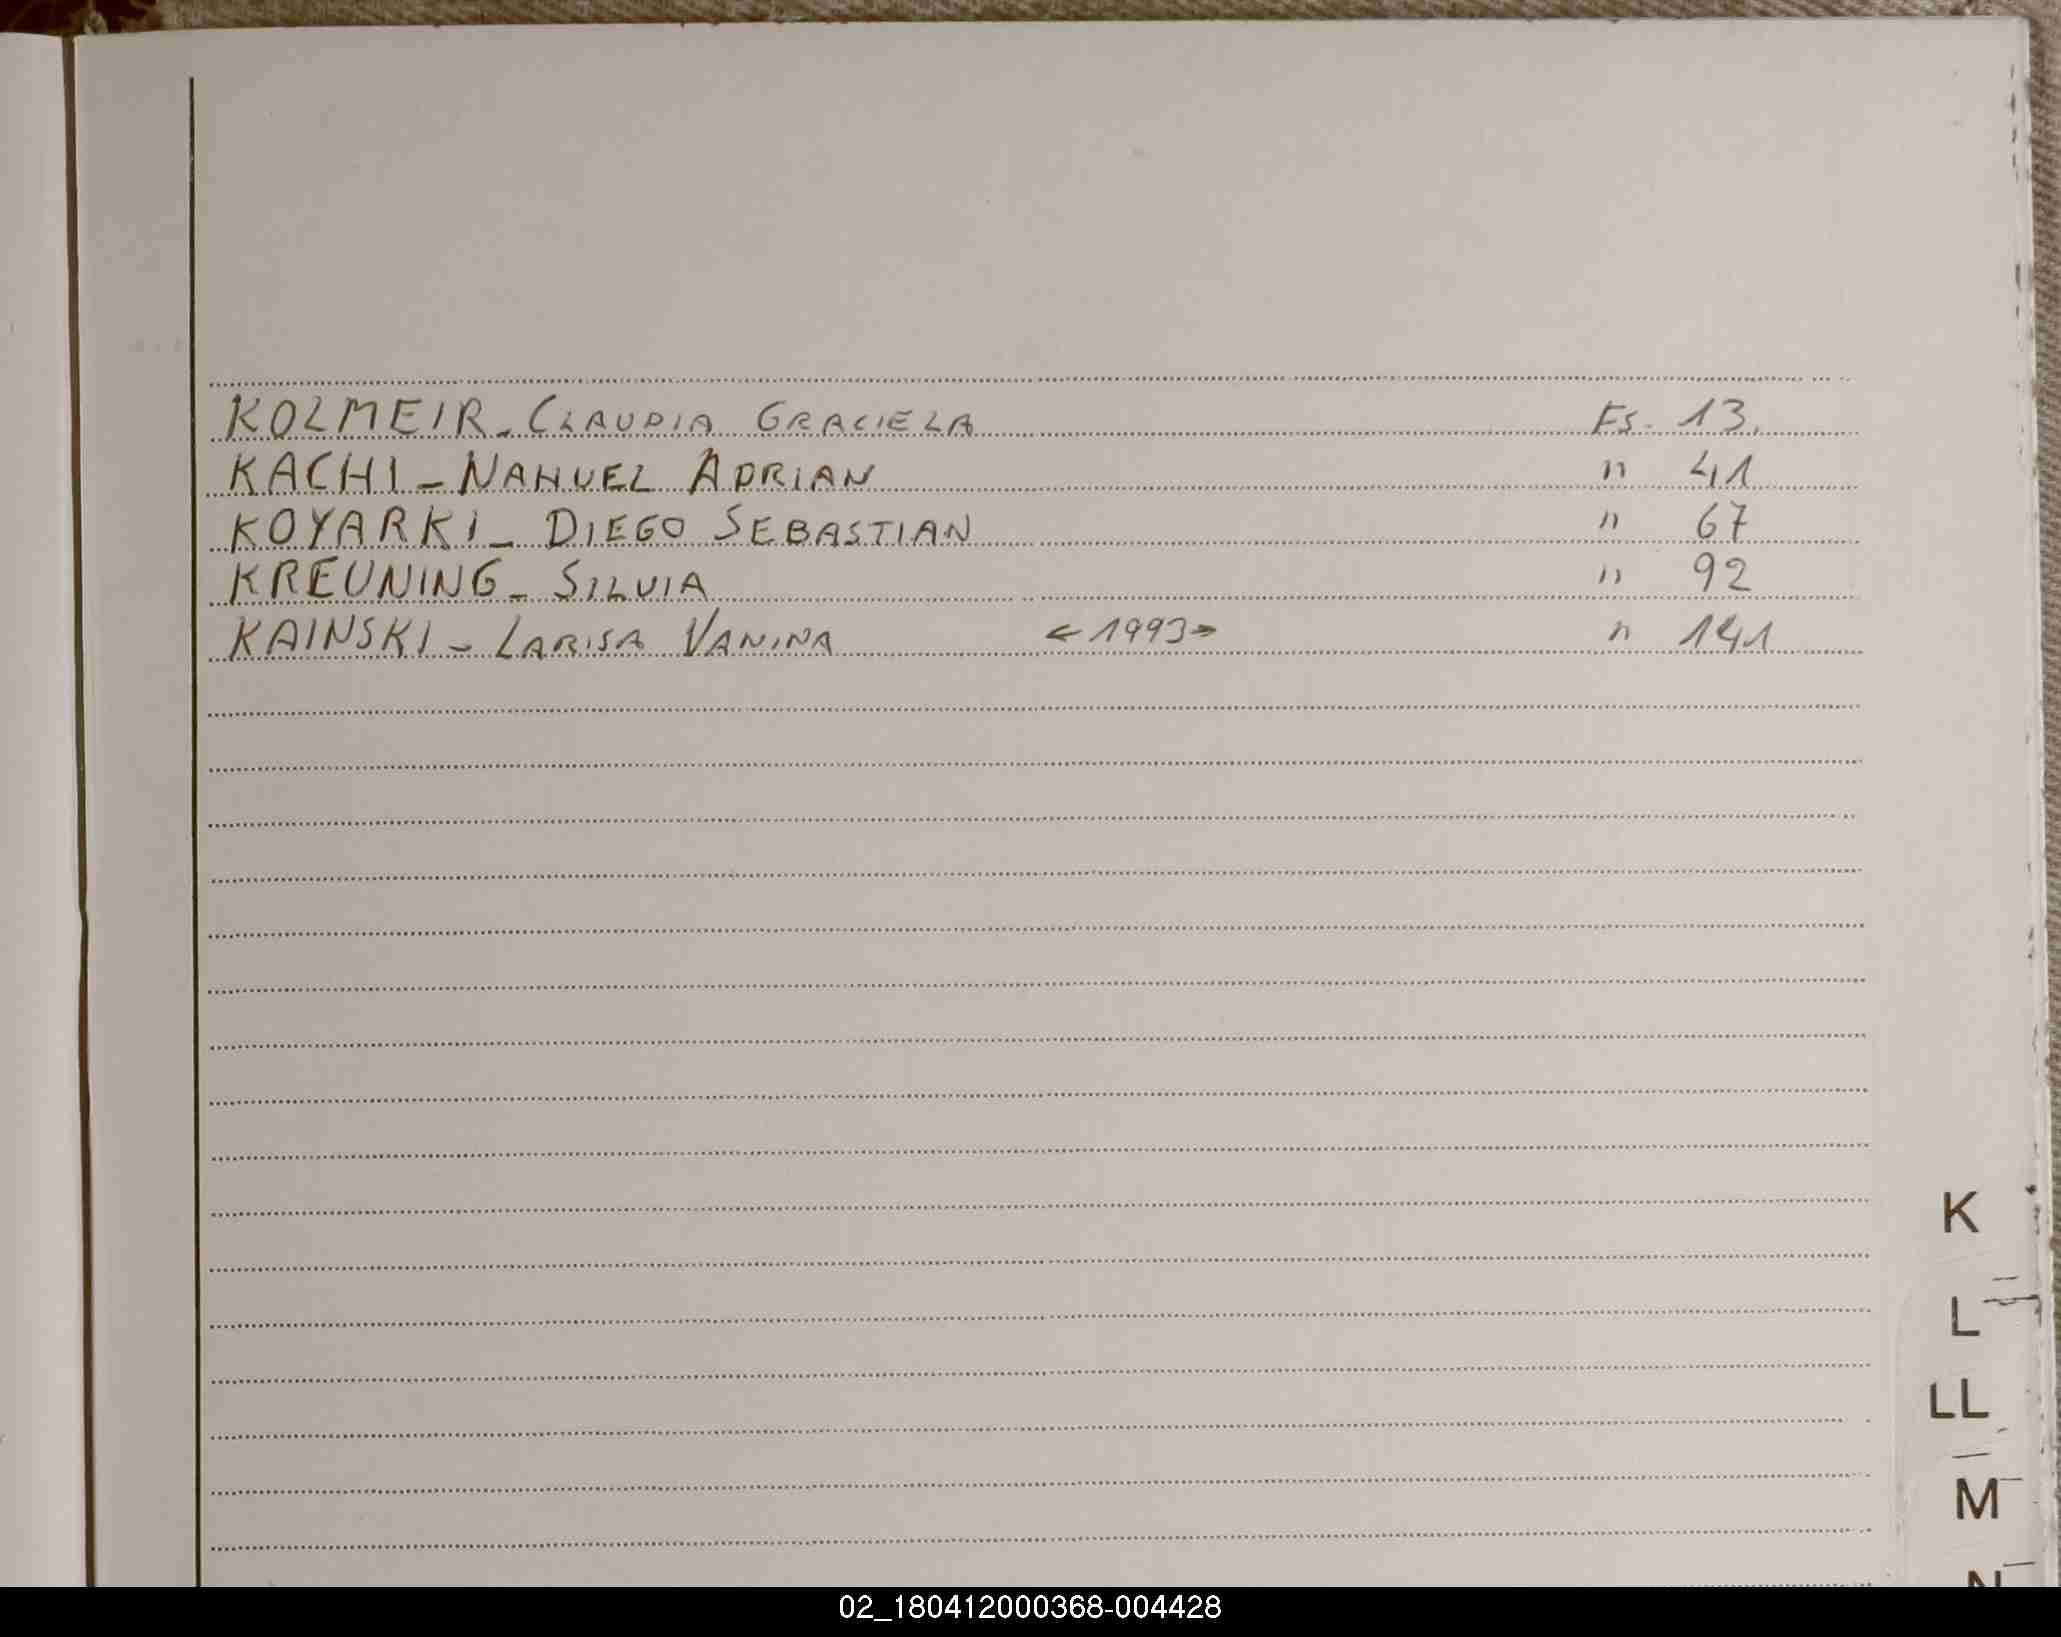 KOLMEIR - CLAUDIA GRACIELA Fs. 13.
KACHI - NAHUEL ADRIAN " 41
KOYARKI - DIEGO SEBASTIAN " 67
KREUNING - SILVIA " 92
KAINSKI - LARISA VANINA ←1993→ " 141
K
L
LL
M
N
02_180412000368-004428